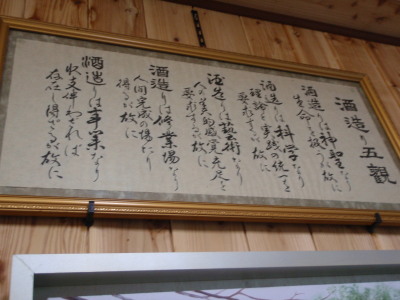 酒造り五觀
酒造りは神聖なり
生命を扱うに故に
酒造りは科学なり
理論と実践の統一を
要求するに故に
酒造りは藝術なり
人の美的鑑賞充足を
要求するに故に
酒造りは修業場なり
人間完成の場たり
得るが故に
酒造りは事業なり
収支伴わざれば
存在し得ざるが故に